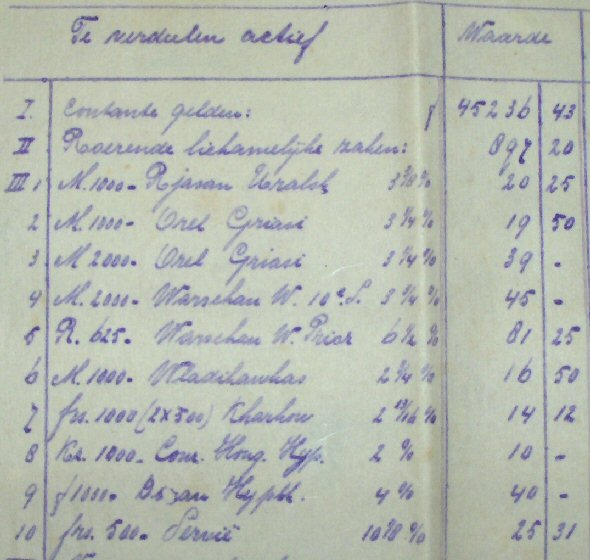 Te verdeelen actief Waarde
I. Contante gelden: f 45236 43
II Roerende lichamelijke zaken: 897 20
III 1 M. 1000.- Rjasan Uralsk 20 25
2 M. 1000.- Orel Griasi 3 1/4 % 19 50
3 M 2000.- Orel Griasi 3 1/4 % 39 -
4 M. 2000.- Warschau W. 10e S. 3 3/4 % 45 -
5 R. 625.- Warschau W. Prior 6 1/2 % 81 25
6 M. 1000.- Wladikawkas 2 3/4 % 16 50
7 frs. 1000 (2x500) Kharkow 2 13/16 % 14 12
8 Kr. 1000.- Com. Hong. Hyp. 2 % 10 -
9 f 1000.- Hypbk. 4 % 40 -
10 frs. 500.- Servië 25 31